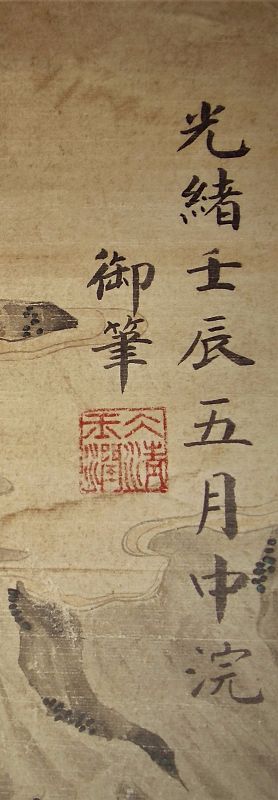 光緒壬辰五月中浣
御筆